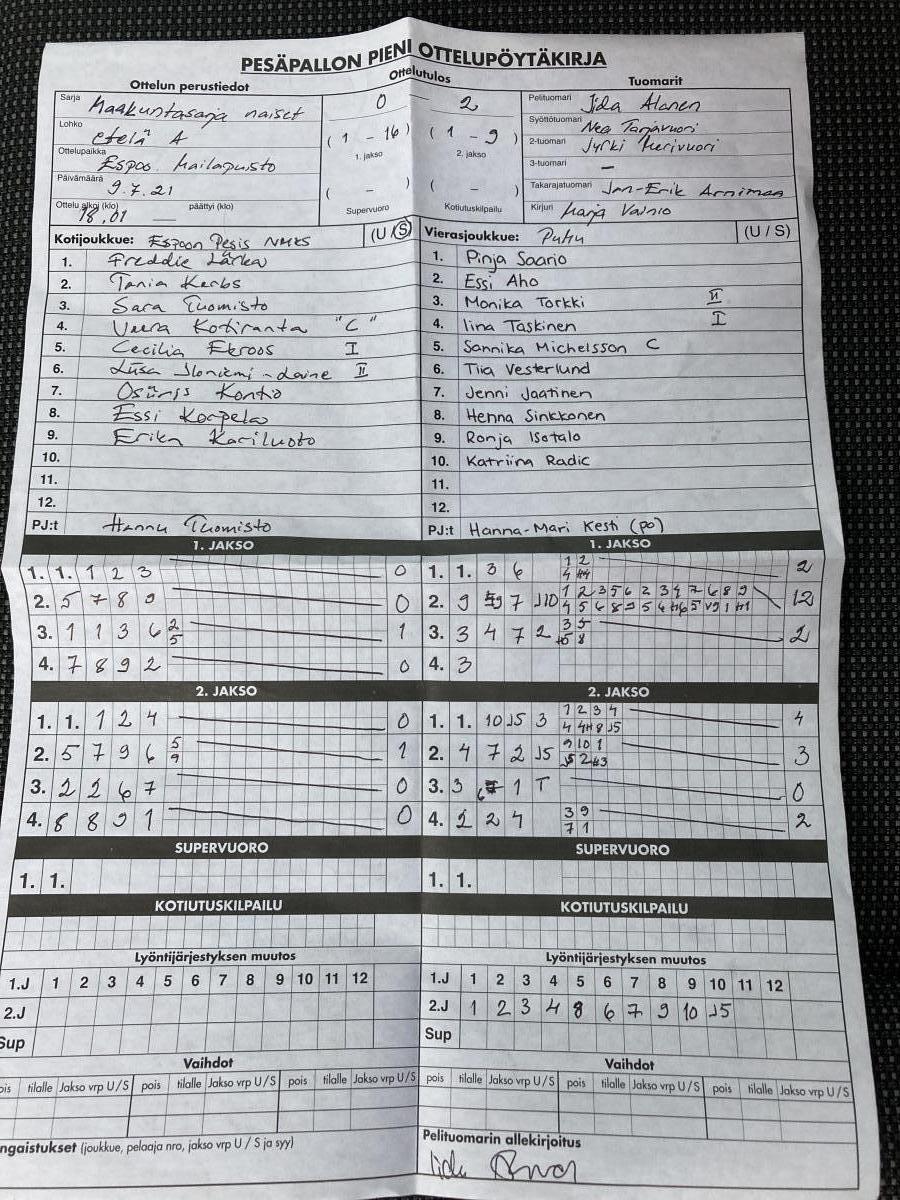 PESÄPALLON PIENI OTTELUPÖYTÄKIRJA
Ottelun perustiedot Ottelutulos Tuomarit
Sarja Maakuntasarja naiset 0 – 2 Pelituomari Iida Alanen
Lohko etelä A (1 – 16) (1 – 9) Syöttötuomari Nea Tarjavuori
1. jakso 2. jakso
Ottelupaikka Espoo Mailapuisto 2-tuomari Jyrki
3-tuomari –
Päivämäärä 9.7.21 ( – ) ( – ) Takarajatuomari Jan-Erik Arniman
Ottelu alkoi (klo) 18.01 päättyi (klo) — Supervuoro Kotiutuskilpailu Kirjuri Marja Vainio
Kotijoukkue: Espoon Pesis NMKS (U / S) Vierasjoukkue: Puhu (U / S)
1. Freddie Lärka 1. Pinja Saario
2. Tania Kerbs 2. Essi Aho
3. Sara Tuomisto 3. Monika Torkki II
4. Veera Kotiranta "C" 4. Iina Taskinen I
5. Cecilia Ekroos I 5. Sannika Michelsson C
6. Liisa Iloniemi-Laine II 6. Tiia Vesterlund
7. Kontio 7. Jenni Jaatinen
8. Essi Korpela 8. Henna Sinkkonen
9. Erika Kariluoto 9. Ronja Isotalo
10. 10. Katriina Radic
11. 11.
12. 12.
PJ:t Hannu Tuomisto PJ:t Hanna-Mari Kesti (po)
1. JAKSO 1. JAKSO
1. 1. 1 2 3 0 1. 1. 3 6 1 2 2
4
2. 5 7 8 9 0 2. 9 7 J10 1 2 3 5 6 2 3 4 7 6 8 9 12
4 5 6 8 9 5 4
3. 1 1 3 6 2 1 3. 3 4 7 2 3 5 2
5 8
4. 7 8 9 2 0 4. 3
2. JAKSO 2. JAKSO
1. 1. 1 2 4 0 1. 1. 10 J5 3 1 2 3 4 4
4 4H 8 J5
2. 5 7 9 6 5 1 2. 4 7 2 J5 9 10 1 3
9 J5 2
3. 2 2 6 7 0 3. 3 1 T 0
4. 8 8 9 1 0 4. 2 2 4 3 9 2
7 1
SUPERVUORO SUPERVUORO
1. 1. 1. 1.
KOTIUTUSKILPAILU KOTIUTUSKILPAILU
Lyöntijärjestyksen muutos Lyöntijärjestyksen muutos
1.J 1 2 3 4 5 6 7 8 9 10 11 12 1.J 1 2 3 4 5 6 7 8 9 10 11 12
2.J 2.J 1 2 3 4 8 6 7 9 10 J5
Sup Sup
Vaihdot Vaihdot
ois tilalle Jakso vrp U/S pois tilalle Jakso vrp U/S pois tilalle Jakso vrp U/S pois tilalle Jakso vrp U/S pois tilalle Jakso vrp U/S pois tilalle Jakso vrp U/S
ngaistukset (joukkue, pelaaja nro, jakso vrp U / S ja syy) Pelituomarin allekirjoitus